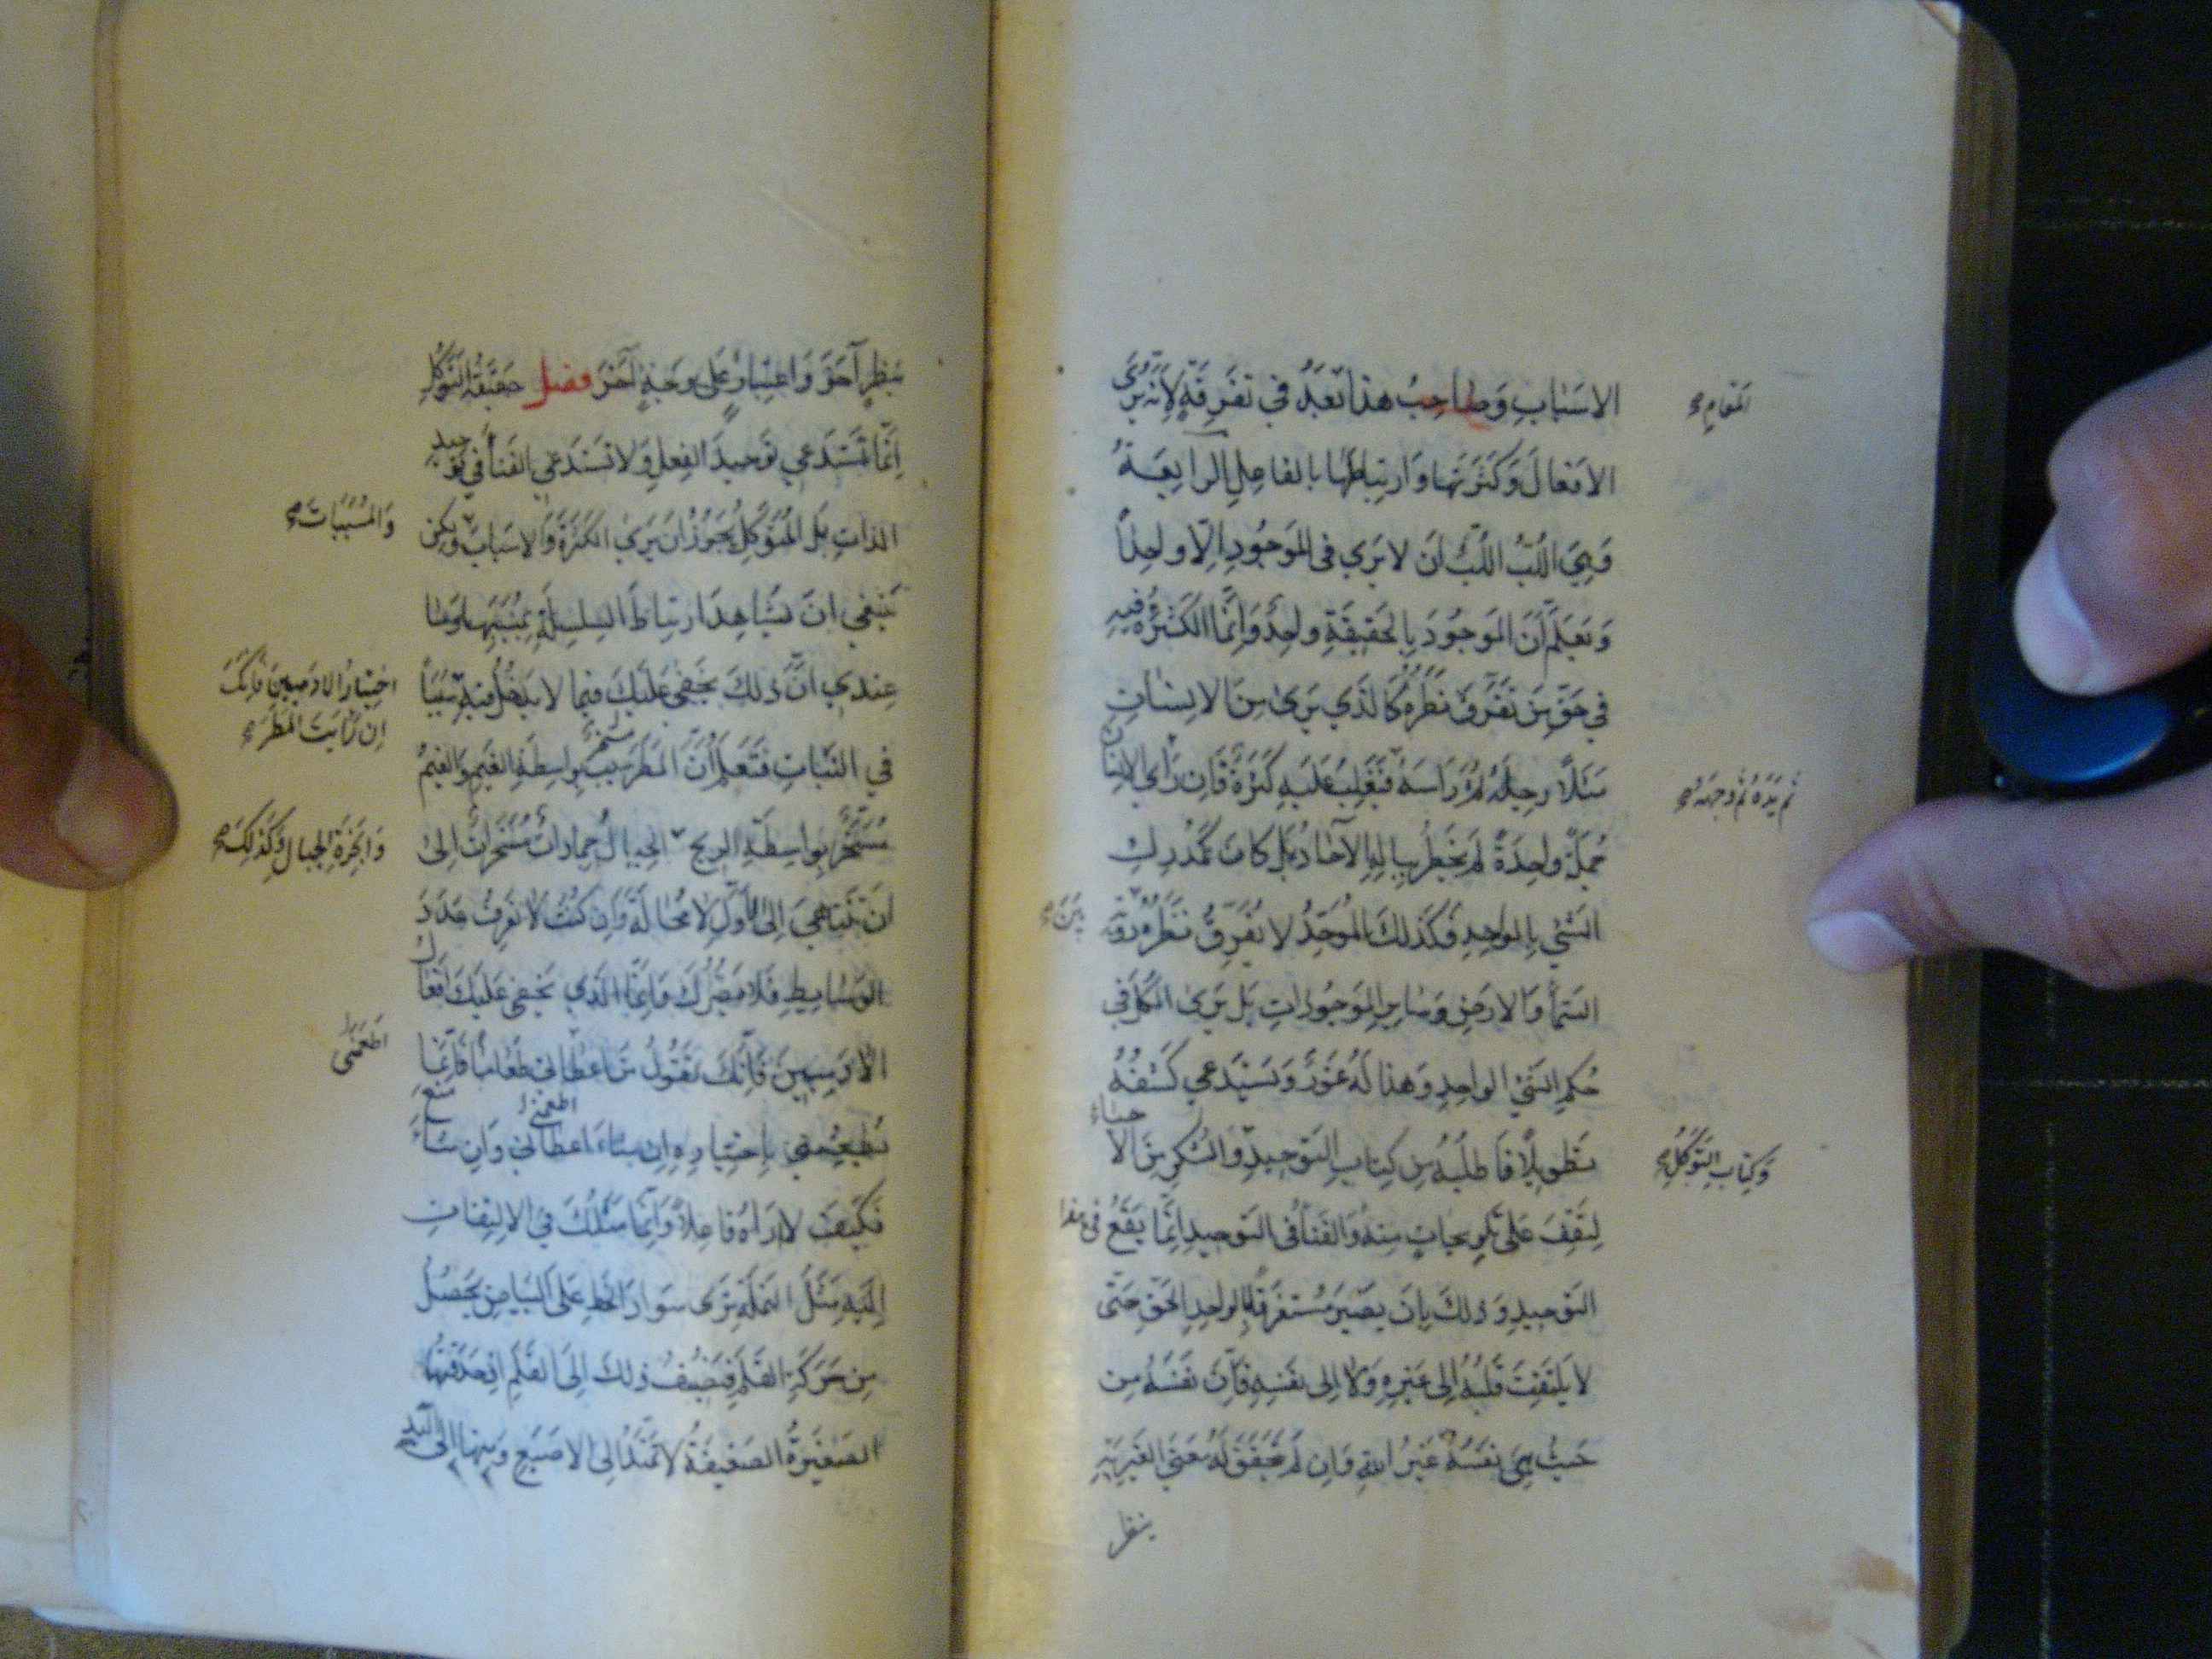 الاسباب وصاحب هذا تعبد في تفرقة لانه يرى
المقام صح
الافعال وكثرتها وارتباطها بالفاعل الرابعة
وهي اللب اللب ان لا يرى في الموجود الا واحدا
وتعلم ان الموجود بالحقيقة واحد وانما الكثرة فيه
في حق من تفرق نظره كالذي يرى من الانسان
مثلا رجله ثم راسه فيغلب عليه كثرة فان راى الانسان
ثم يده ثم وجهه صح
جملة واحدة لم يخطر بباله الآحاد بل كان كمدرك
الشئ الواحد فكذلك الموحد لا يفرق نظره رؤية
بين صح
السماء والارض وسائر الموجودات بل يرى الكل في
حكم الشئ الواحد وهذا له غور ويستدعي كشفه
تطويلا فاطلبه من كتاب التوحيد والشكر من الاحياء
وكتاب التوكل صح
لتقف على تلويحات منه والفناء في التوحيد انما يقع في هذا
التوحيد وذلك بان يصير مستغرقا بالواحد الحق حتى
لا يلتفت قلبه الى غيره ولا الى نفسه فان نفسه من
حيث هي نفسه غير الله وان لم يتحقق له معنى الغيرية
بنظر
بنظر آخر واعتبار على وجه آخر فصل حقيقة التوكل
انما تستدعي توحيد الفعل ولا تستدعي الفناء في توحيد
الذات بل المتوكل يجوز ان يرى الكثرة والاسباب ولكن
والمسببات صح
ينبغي ان يشاهد ارتباط السلسلة بمسببها وما
عندي ان ذلك يخفى عليك فيما لا يدخل فيه شيئا
اختيار الادميين فانك
ان رايت المطر صح
في النبات فتعلم ان المطر سبب بواسطة الغيم والغيم
مسخر بواسطة الريح الجبال جمادات مسخرات الى
وابخرة الجبال وكذلك صح
ان تنتهي الى الاول لا محالة وان كنت لا تعرف عدد
الوسائط فلا يضرك وانما الذي يخفى عليك افعال
الادميين فانك تقول من اعطاني طعاما فانما
اطعمنى
يطعمني باختياره ان شاء اعطاني وان شاء منع
اطعمني
فكيف لا اراه فاعلا وانما مثلك في الالتفات
اليه مثل النملة ترى سواد الخط على البياض يحصل
من حركة القلم فتضيف ذلك الى القلم اذ حدقتها
الصغيرة الضعيفة لا تمتد الى الاصبع ومنها الى اليد